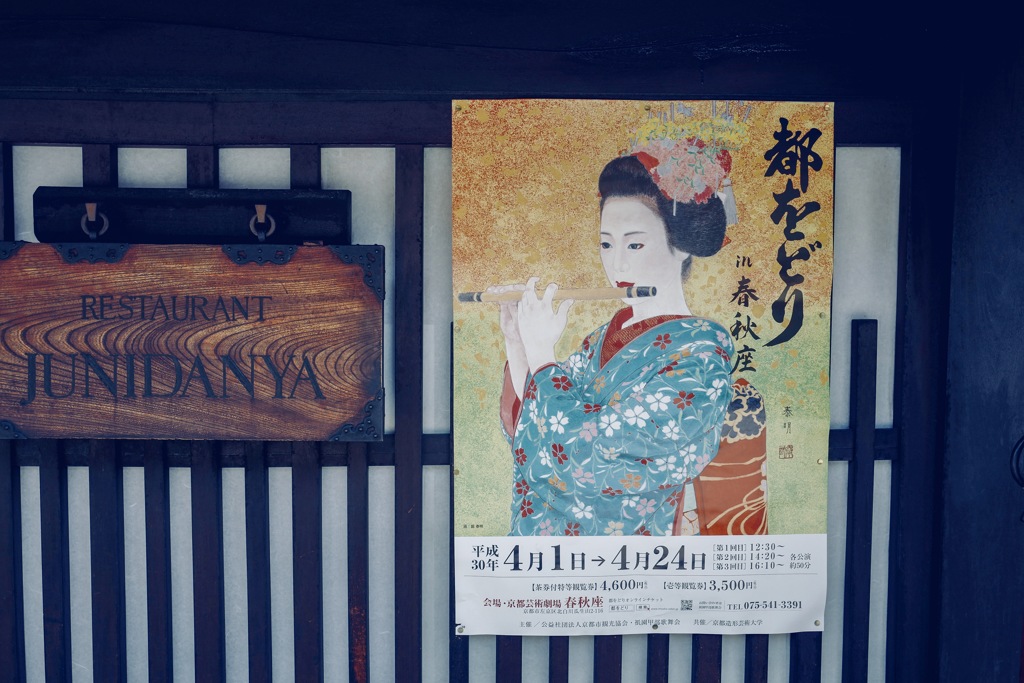 RESTAURANT
JUNIDANYA
都をどり
in 春秋座
泰明
平成30年 4月1日→4月24日
[第1回目] 12:30~
[第2回目] 14:20~
[第3回目] 16:10~
各公演
約50分
【茶券付特等観覧券】4,600円 【壱等観覧券】3,500円
会場・京都芸術劇場 春秋座
京都市左京区北白川瓜生山2-116
都をどりオンラインチケット
都をどり 検索
TEL 075-541-3391
主催/公益社団法人京都市観光協会・祇園甲部歌舞会 共催/京都造形芸術大学